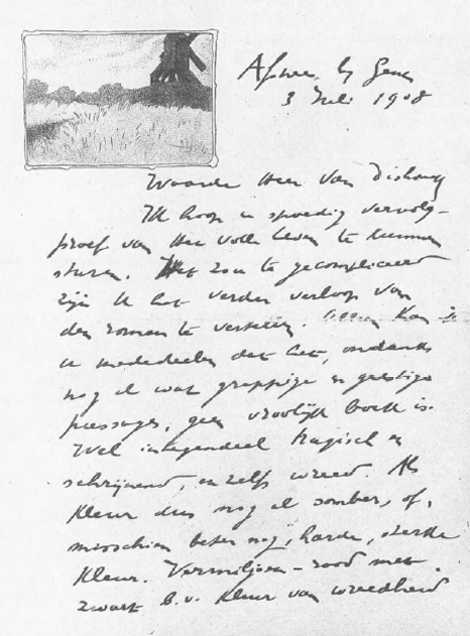 Afsnee by Gent
3 Juli 1908
Waarde Heer Van Dishoeck
Ik hoop u spoedig vervolg-
proef van Het volle leven te kunnen
sturen. Het zou te gecompliceerd
zijn U het verder verloop van
den roman te vertellen. kan ik
u mededeelen dat het, ondanks
nog al wat grappige en geestige
passages, geen vroolijk boek is.
Wel integendeel tragisch en
schrijnend, en zelfs wreed. Als
kleur dus nog al somber, of,
misschien beter nog, harde, sterke
kleur. Vermiljoen-rood met
zwart b.v. kleur van wreedheid